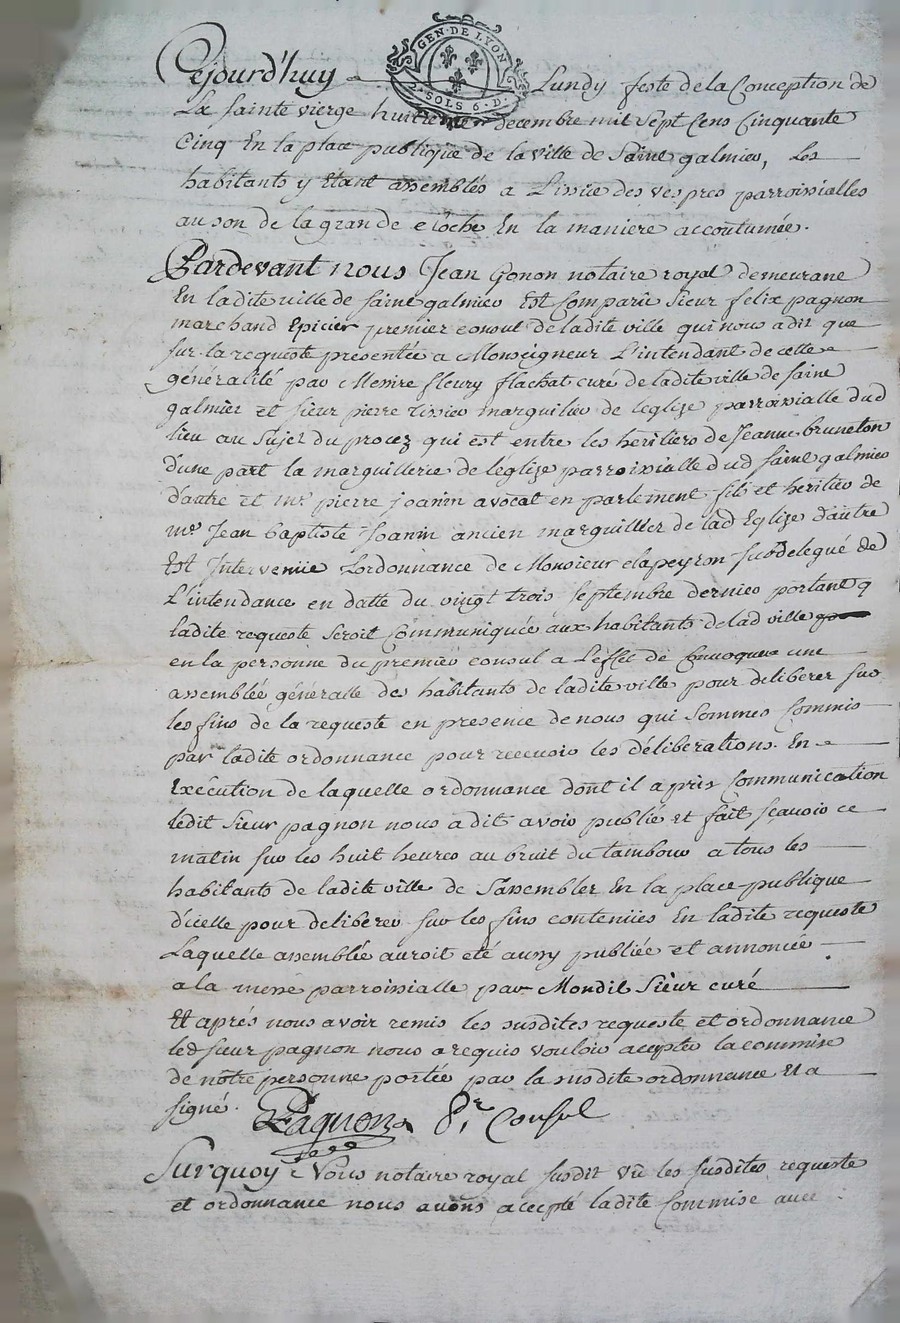 GEN·DE LYON
2·SOLS 6·D.
Cejourd'huy Lundy feste de la Conception de
La sainte vierge huitieme decembre mil sept Cens Cinquante
Cinq En la place publique de la ville de Saint galmier, Les
habitants y Etant assemblés a L'issüe des vespres parroissialles
au son de la grande cloche En la maniere accoutumée.
Pardevant nous Jean Gonon notaire royal demeurant
En ladite ville de saint galmier Est Comparu Sieur felix pagnon
marchand Epicier premier consul de ladite ville qui nous a dit que
sur la requeste presentée a Monseigneur L'intendant de cette
généralité par Messire fleury flachat curé de ladite ville de saint
galmier et sieur pierre marguilier de leglize parroissialle dud
lieu au Sujet du procez qui est entre les heritiers de Jeanne bruneton
d'une part la marguillerie de léglize parroissialle dud saint galmier
d'autre et mr pierre joanin avocat en parlement fils et heritier de
mr Jean baptiste Joanin ancien marguillier de lad Eglize d'autre
Est Intervenüe Lordonnance de Monsieur delapeyron subdelegué de
L'intendance en datte du vingt trois septembre dernier portant q
ladite requeste seroit Communiquée aux habitants de lad ville
en la personne du premier consul a L'effet de Convoquer une
assemblée généralle des habitants de ladite ville pour deliberer sur
les fins de la requeste en presence de nous qui sommes Commis
par ladite ordonnance pour recevoir les déliberations. En
Exécution de laquelle ordonnance dont il a pris Communication
ledit Sieur pagnon nous a dit avoir publié et fait sçauoir ce
matin sur les huit heures au bruit du tambour a tous les
habitants de ladite ville de S'assembler En la place publique
d'icelle pour deliberer sur les fins contenües En ladite requeste
Laquelle assemblée auroit été aussy publiée et annoncée
a la messe parroissialle par Mondit Sieur curé
Et aprés nous avoir remis les susdites requeste et ordonnance
led sieur pagnon nous a requis vouloir accepter la commise
de nôtre personne portée par la susdite ordonnance Et a
signé. Pagnon Pr Consul
Surquoy Nous notaire royal susdit vû les susdites requeste
et ordonnance nous avons accepté ladite Commise avec